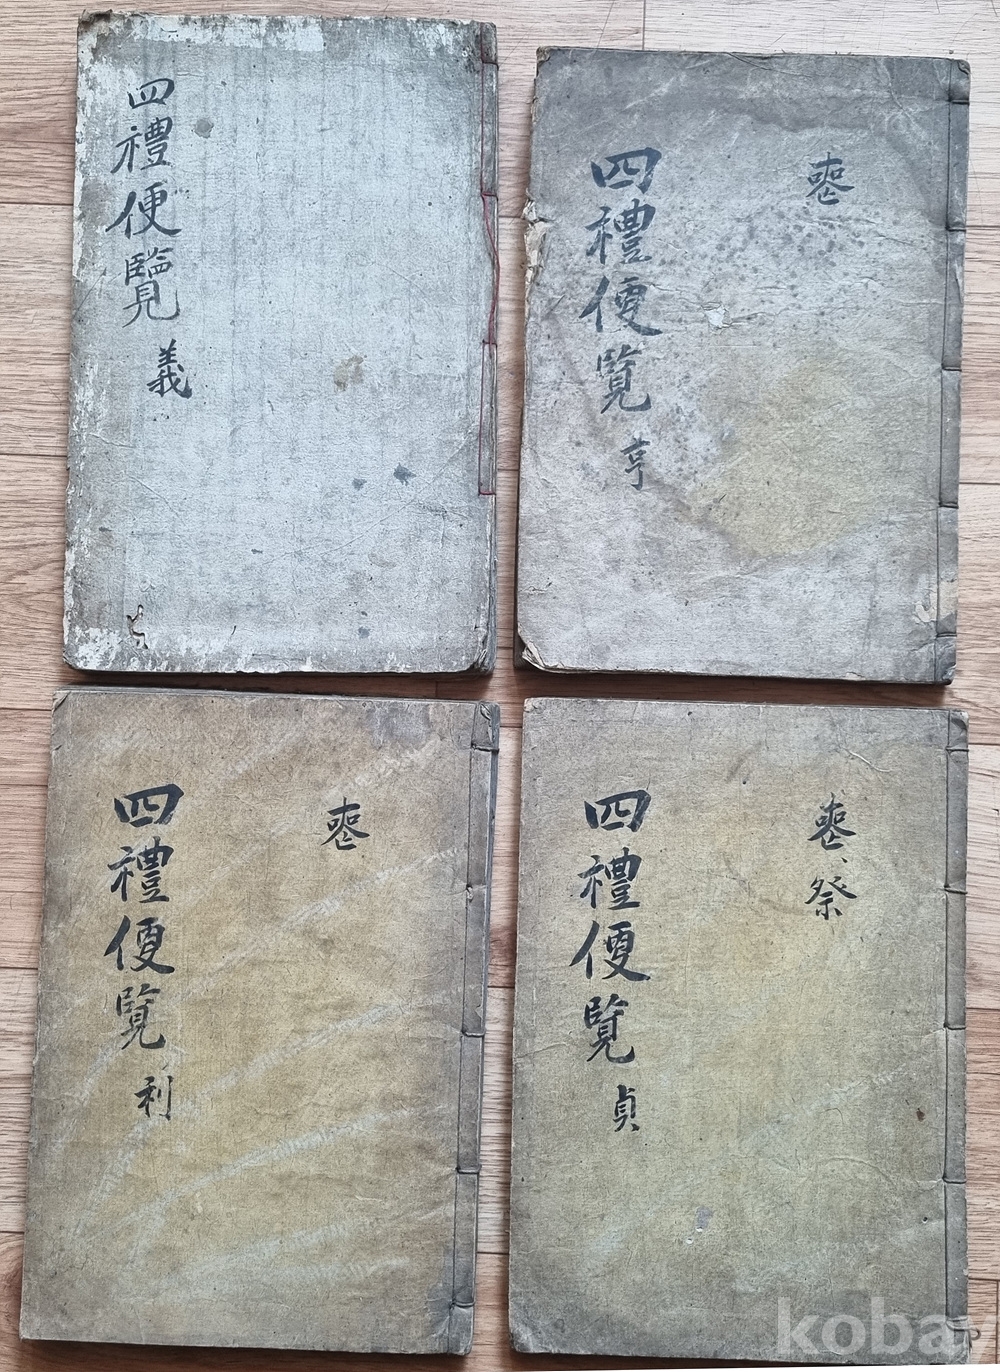 四禮便覽 義
喪
四禮便覽 亨
喪
四禮便覽 利
喪、祭
四禮便覽 貞
kobay